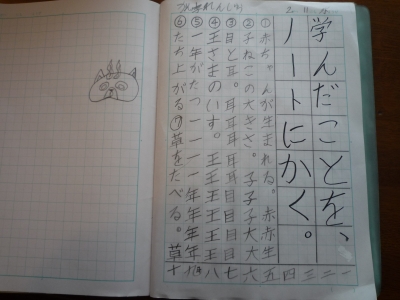 学んだことを、
ノートにかく。
①赤ちゃんが生まれる。赤赤生
②子ねこの大きさ。子子大大
③目と耳。耳耳耳目目
④王さまのいす。王王王
⑤一年がたつ一一一年年
⑥たち上がる⑦草をたべる。草
一二三四五六七八九十